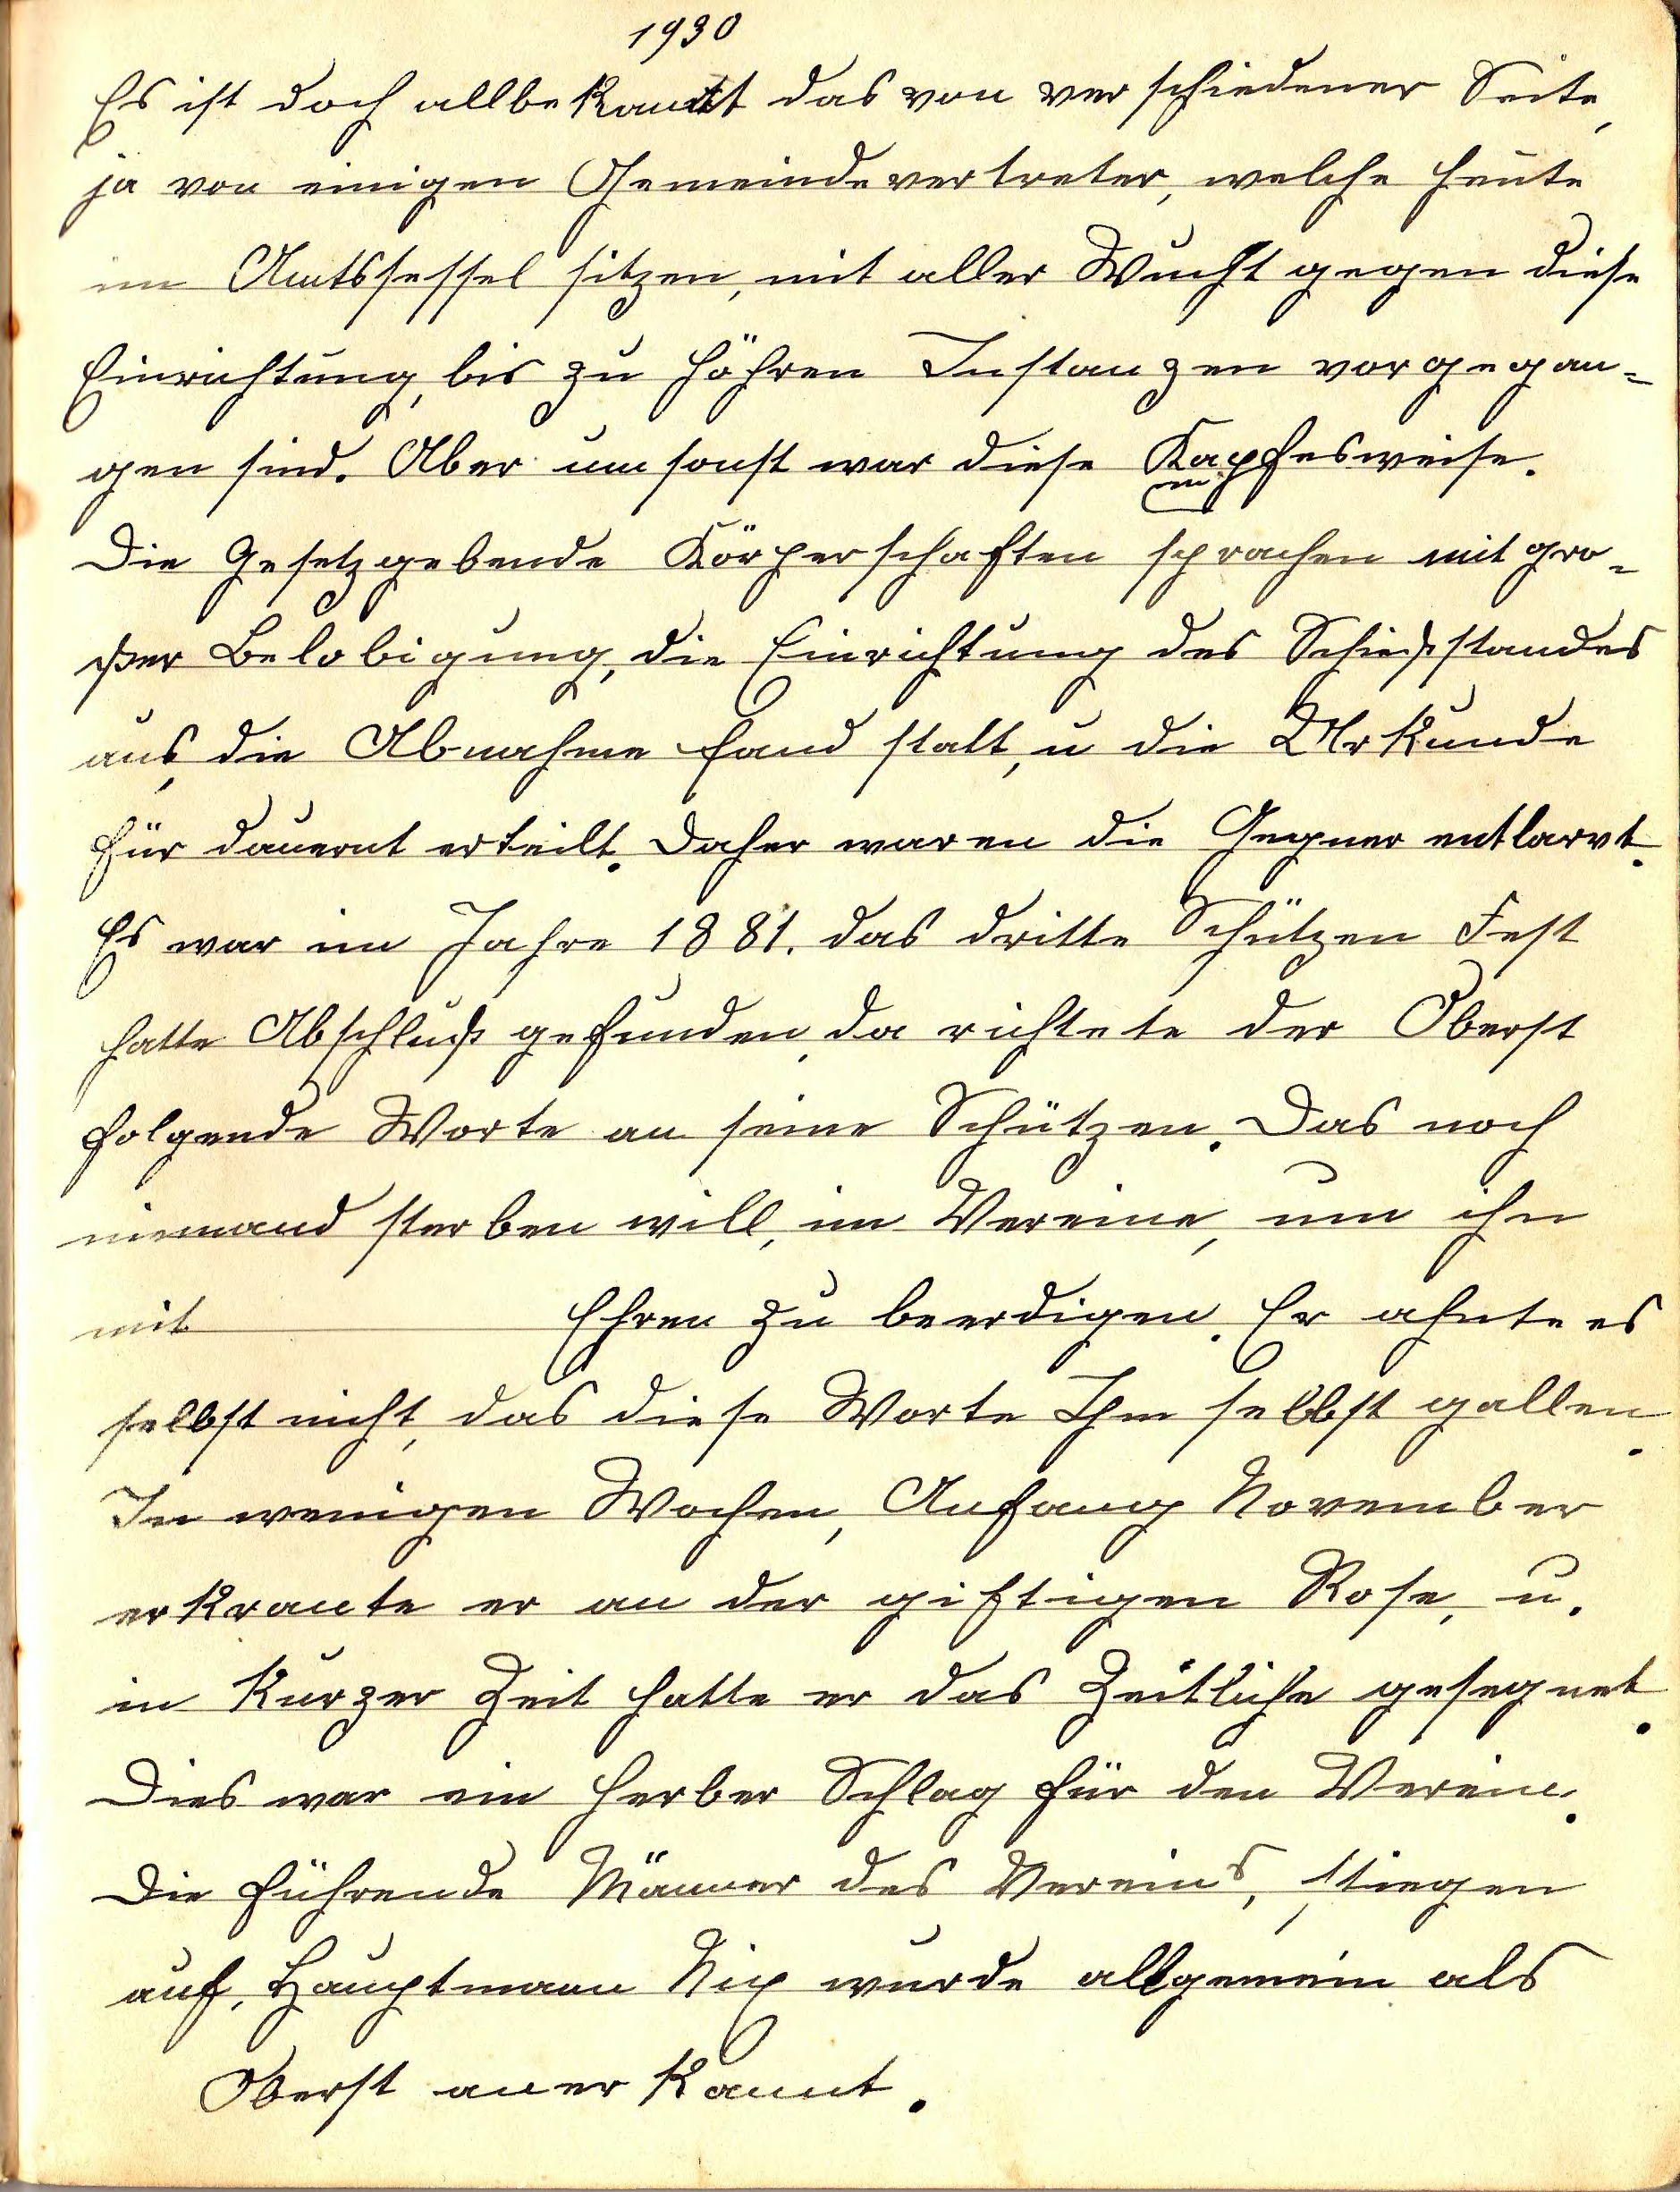 1930
Es ist doch allbekannt das von verschiedener Seite,
ja von einigen Gemeindevertreter, welche heute
im Amtssessel sitzen, mit aller Wucht gegen diese
Einrichtung, bis zu höhren Instanzen vorgegan=
gen sind. Aber umsonst war diese Kapfesweise.
m
Die Gesetzgebende Körperschaften sprachen mit gro=
ßer Belobigung, die Einrichtung des Schießstandes
aus, die Abnahme fand statt, u die Urkunde
für dauernt erteilt. Daher waren die Gegner entlarvt.
Es war im Jahre 1881. das dritte Schützen Fest
hatte Abschluß gefunden, da richtete der Oberst
folgende Worte an seine Schützen. Das noch
niemand sterben will, im Vereine, um ihn
mit Ehren zu beerdigen. Er ahnte es
selbst nicht, das diese Worte Ihm selbst gallen.
In wenigen Wochen, Anfang November
erkrante er an der giftigen Rose, u.
in kurzer Zeit hatte er das Zeitliche gesegnet.
Dies war ein herber Schlag für den Verein.
Die führende Männer des Vereins, stiegen
auf, Hauptmann Nix wurde allgemein als
Oberst anerkannt.